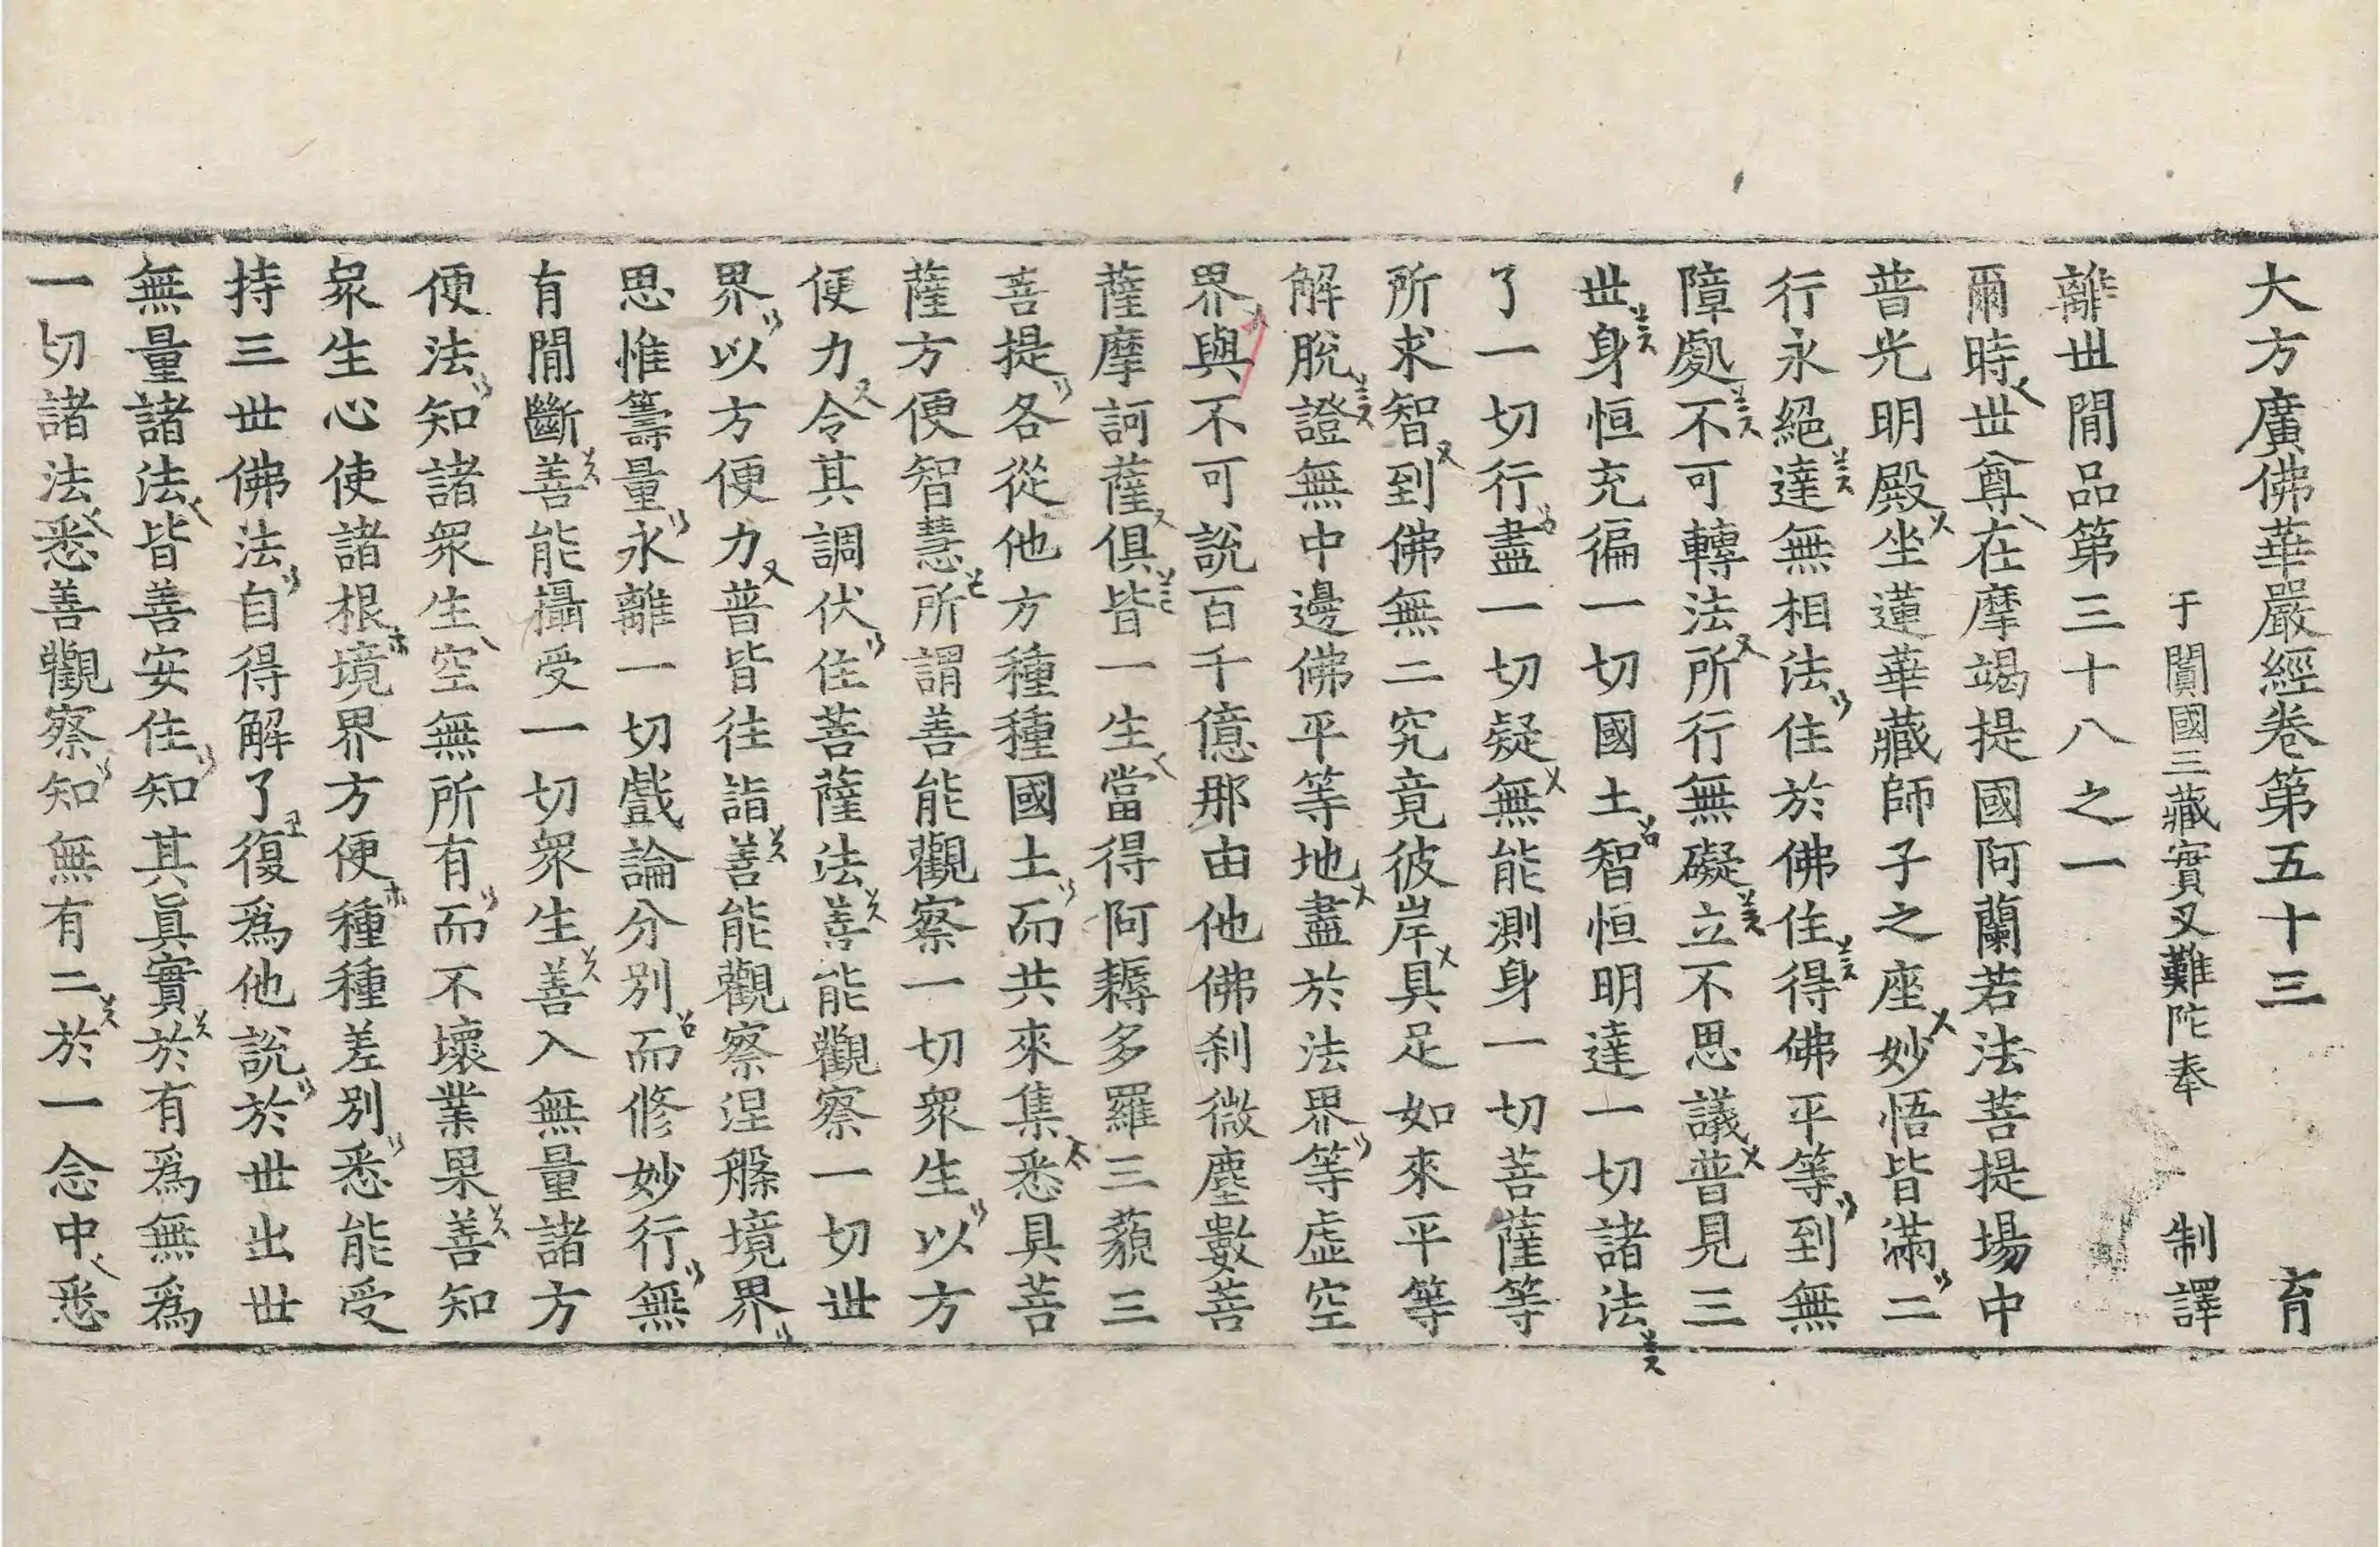 大方廣佛華嚴經卷第五十三 育
于闐國三藏實叉難陀奉 制譯
離世閒品第三十八之一
爾時世尊在摩竭提國阿蘭若法菩提場中
普光明殿坐蓮華藏師子之座妙悟皆滿二
行永絕達無相法住於佛住得佛平等到無
障處不可轉法所行無礙立不思議普見三
世身恒充徧一切國土智恒明達一切諸法
了一切行盡一切疑無能測身一切菩薩等
所求智到佛無二究竟彼岸具足如來平等
解脫證無中邊佛平等地盡於法界等虛空
界與不可說百千億那由他佛刹微塵數菩
薩摩訶薩俱皆一生當得阿耨多羅三藐三
菩提各從他方種種國土而共來集悉具菩
薩方便智慧所謂善能觀察一切衆生以方
便力令其調伏住菩薩法善能觀察一切世
界以方便力普皆往詣善能觀察涅槃境界
思惟籌量永離一切戲論分別而修妙行無
有閒斷善能攝受一切衆生善入無量諸方
便法知諸衆生空無所有而不壞業果善知
衆生心使諸根境界方便種種差別悉能受
持三世佛法自得解了復爲他說於世出世
無量諸法皆善安住知其眞實於有爲無爲
一切諸法悉善觀察知無有二於一念中悉